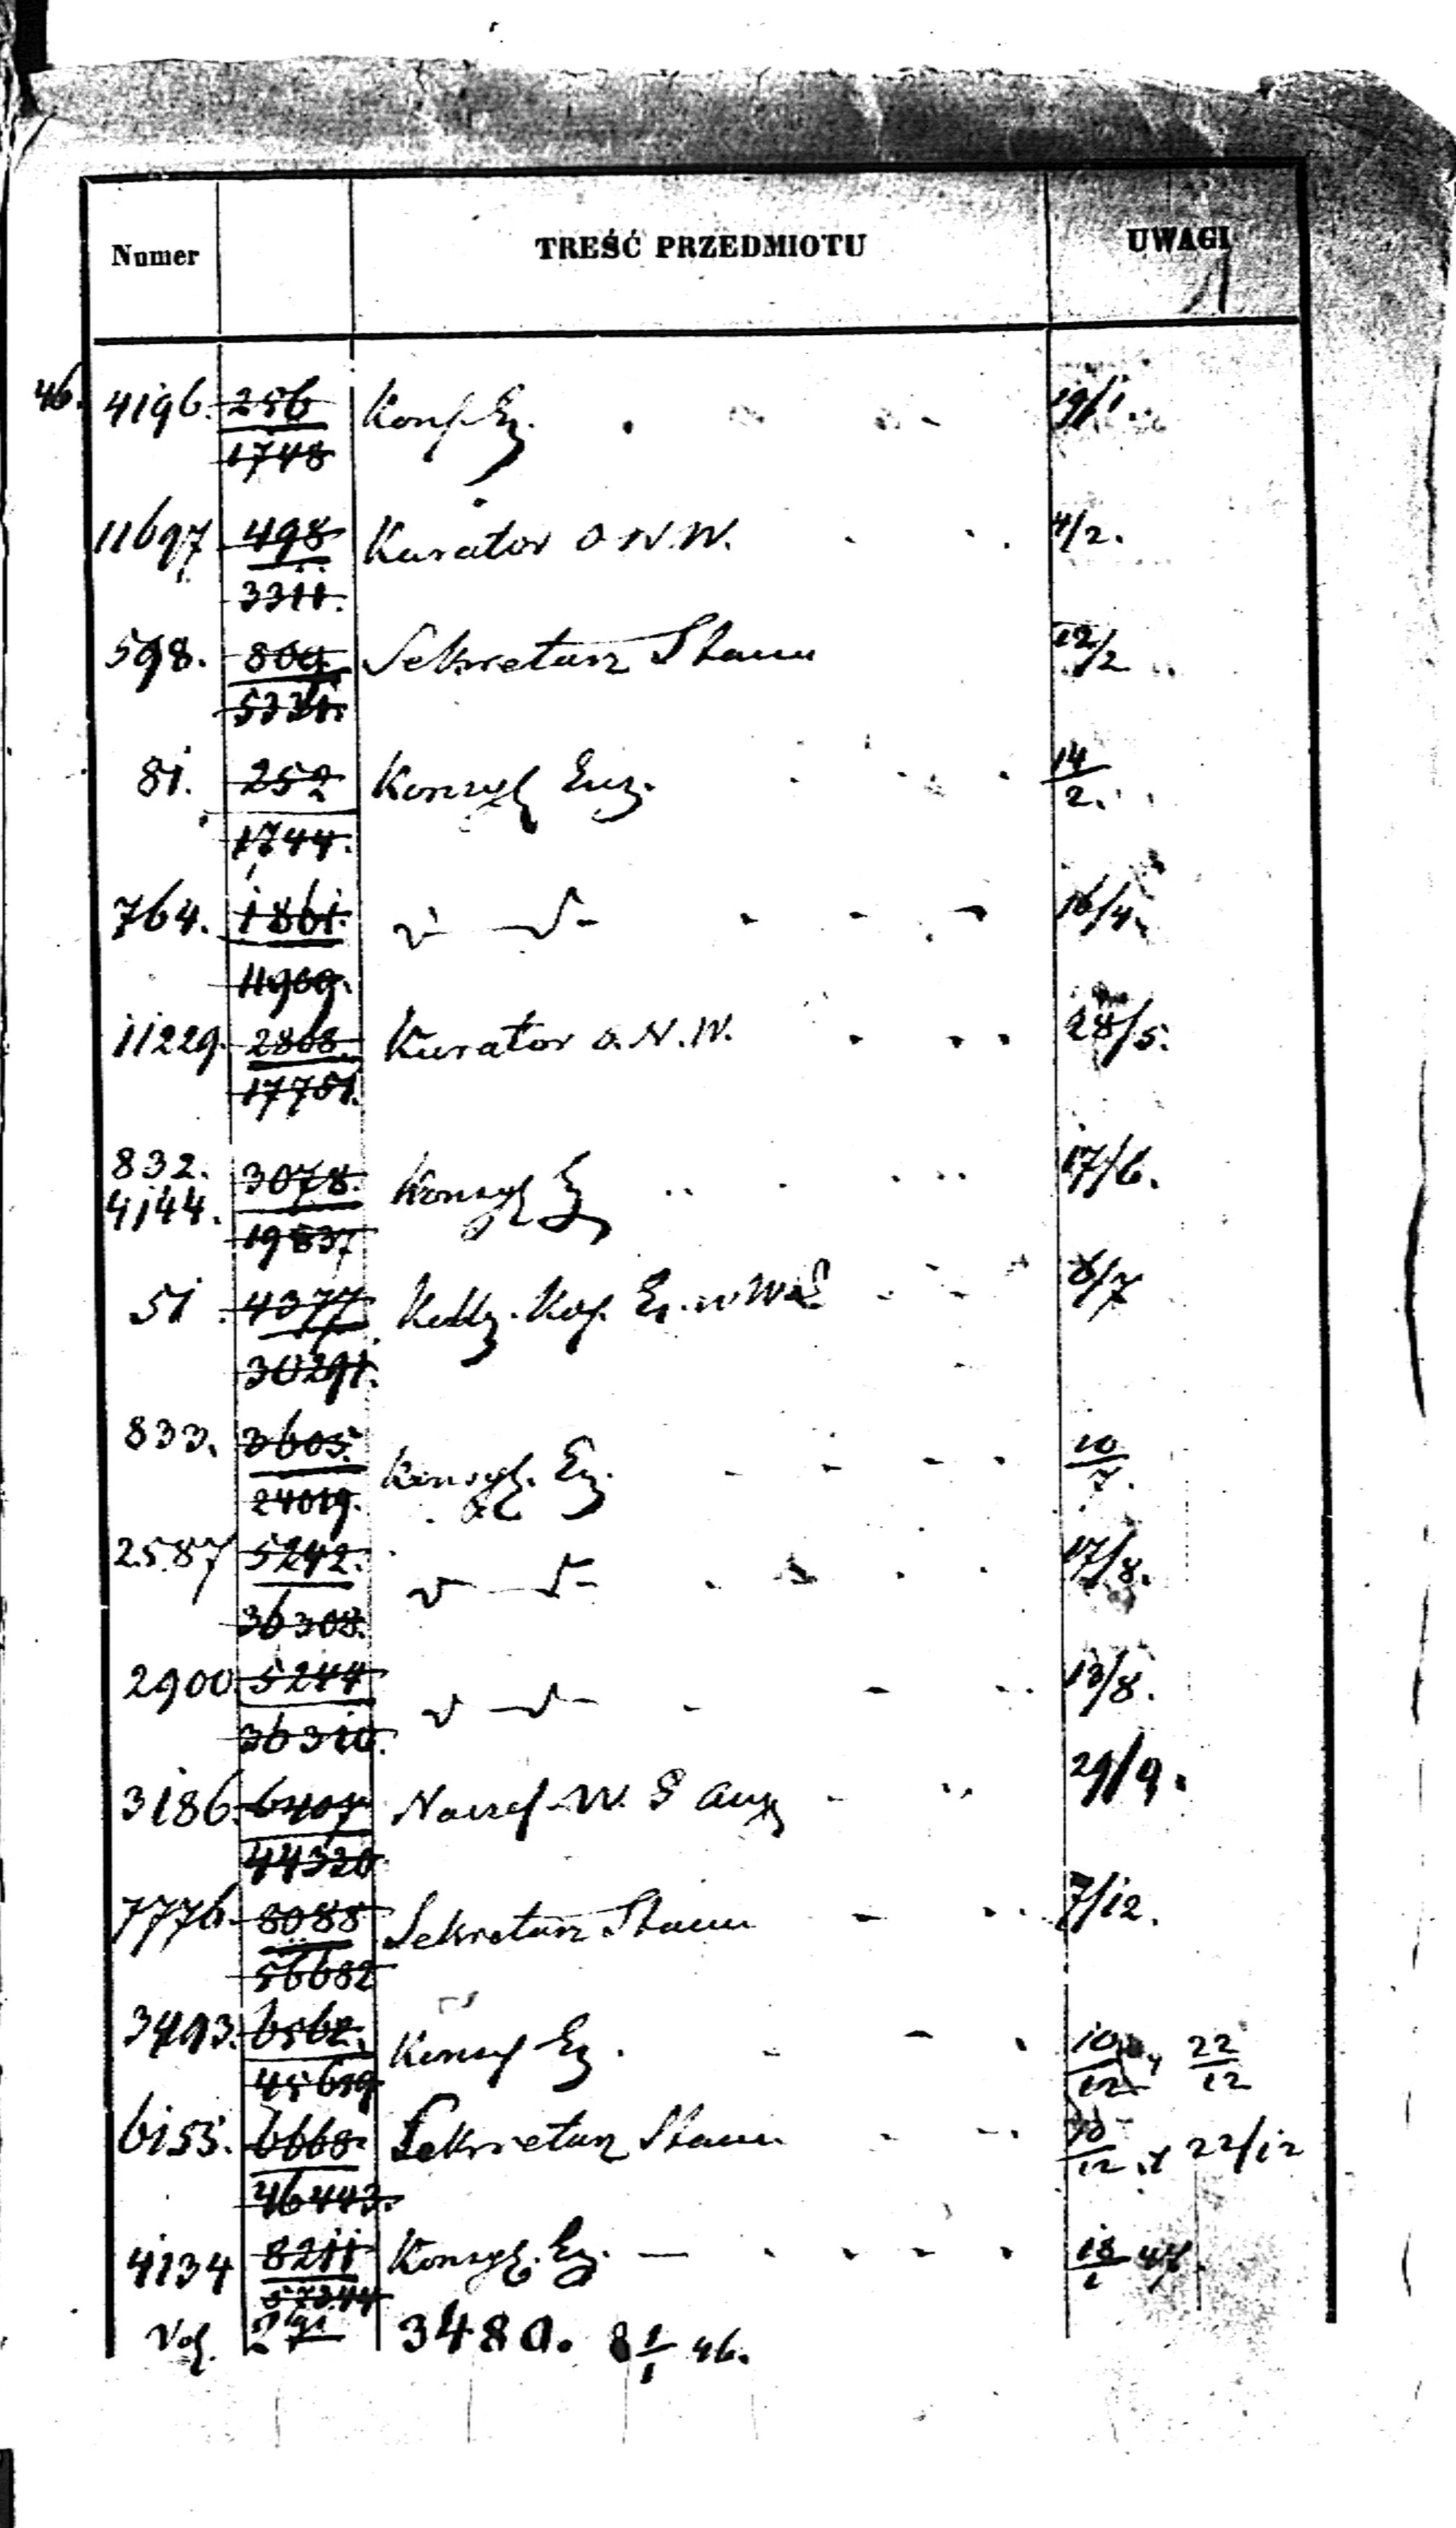 Numer TREŚĆ PRZEDMIOTU UWAGI
46. 4196. 256 Konf. Ez. 19/1.
1748
11697 498 Kurator O. N. W. 4/2.
3311.
598. 809. Sekretarz Stanu 12/2
5331.
81. 252 Konsyl Ez. 14/2.
1744.
764. 1861. 16/4.
11909.
11229. 2868. Kurator O. N. W. 28/5.
17751.
832. 3078. Konsyl Ez 17/6.
4144. 19837
51. 4377 8/7
30291.
833. 3605. Konsyl. Ez. 10/7.
24019.
2587 5242. 17/8.
36308.
2900. 5244 13/8.
36310.
3186. 6407 W. S Aug 29/9.
44320
7776. 8088 Sekretarz Stanu 7/12.
56682
3493. 6562. Konsyl Ez. 10/12 22/12
45619
6155. 6668. Sekretarz Stanu 10/12 22/12
46443.
4134 8211 Konsyl. Ez. 18/1 47.
57344
Vol. 3480. 1/1 46.